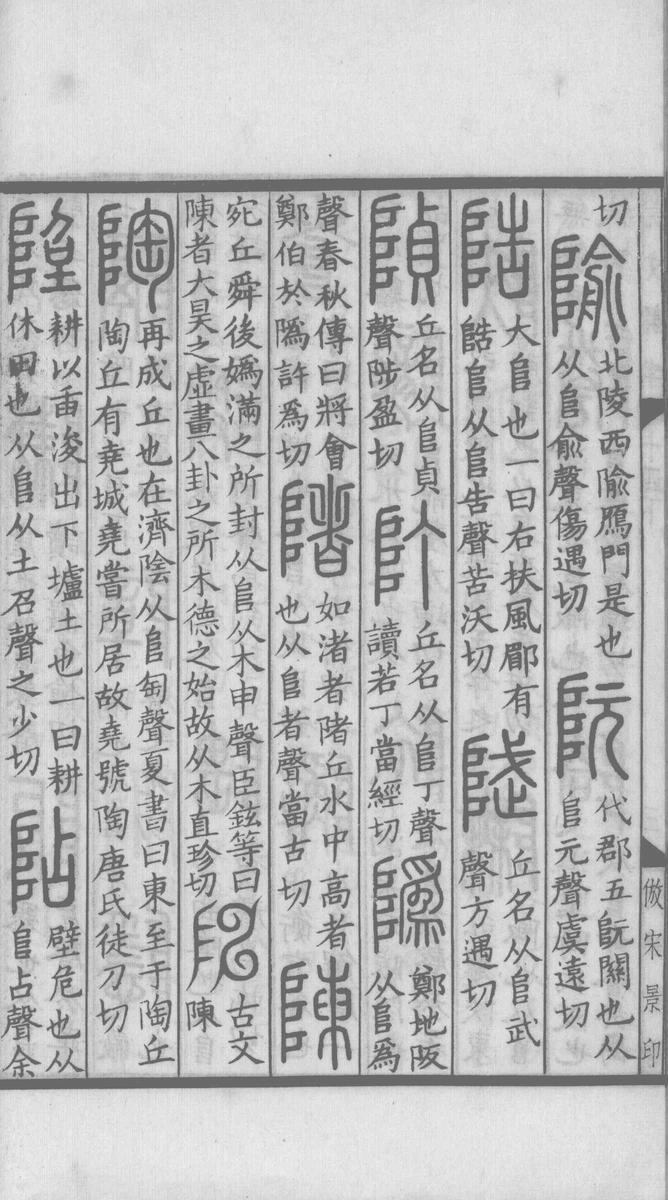 切
隃
北陵西隃鴈門是也
从𨸏俞聲傷遇切
阮
代郡五阮關也从
𨸏元聲虞遠切
陪
大𨸏也一曰右扶風郿有
𨺬𨸏从𨸏告聲苦沃切
陚
丘名从𨸏武
聲方遇切
隕
丘名从𨸏貞
聲陟盈切
阠
丘名从𨸏丁聲
讀若丁當經切
隖
鄭地阪
从𨸏為
聲春秋傳曰將會
鄭伯於隖許為切
陼
如渚者陼丘水中高者
也从𨸏者聲當古切
陳
宛丘舜後媯滿之所封从𨸏从木申聲臣鉉等曰
陳者大昊之虛畫八卦之所木德之始故从木直珍切
𨸬
古文
陳
陶
再成丘也在濟陰从𨸏匋聲夏書曰東至于陶丘
陶丘有堯城堯嘗所居故堯號陶唐氏徒刀切
隉
耕以臿浚出下壚土也一曰耕
休田也从𨸏从土召聲之少切
阽
壁危也从
𨸏占聲余
倣宋景印